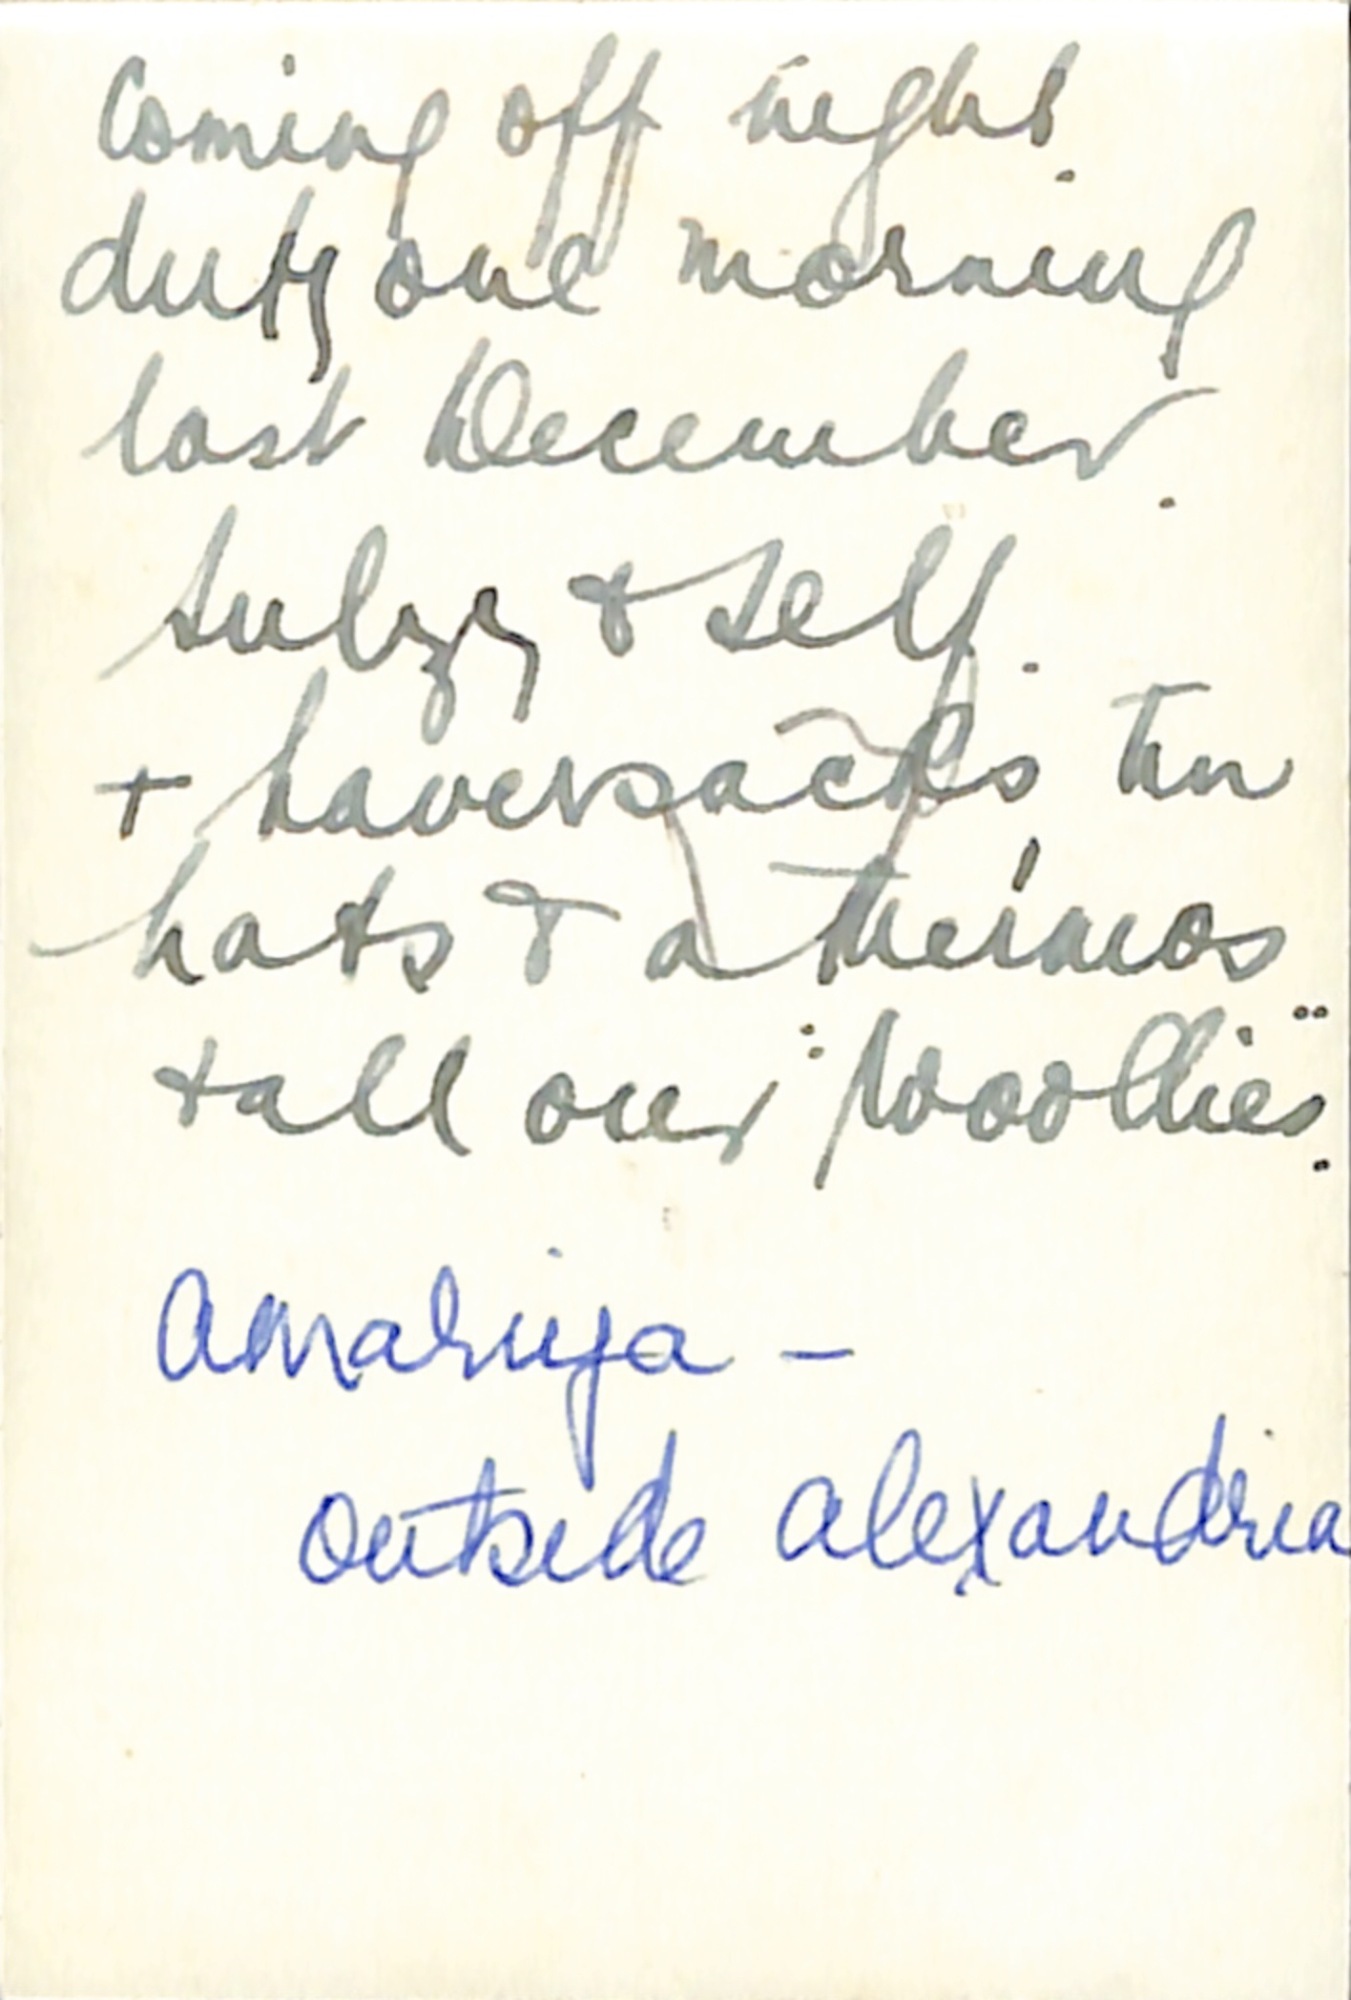 Coming off night
duty one morning
last December.
Sulzy & self.
+ haversacks tin
hats & a thermos
& all our "Woollies".
Amariya -
outside Alexandria